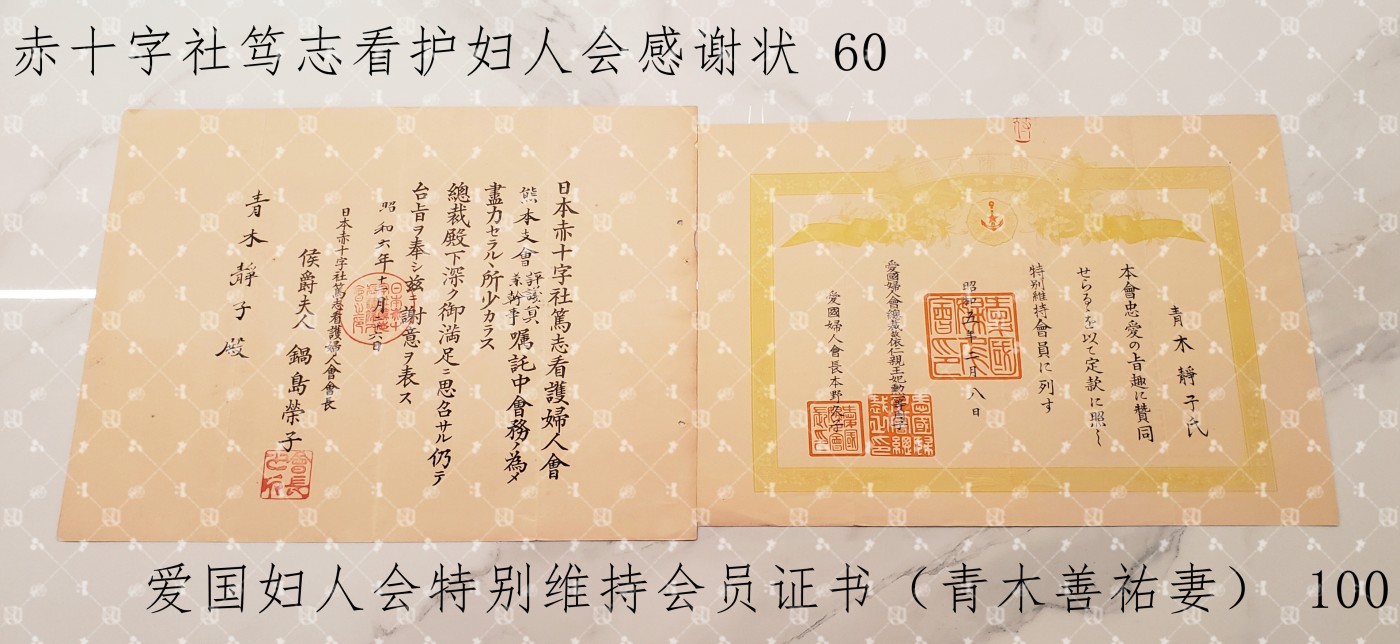 赤十字社笃志看护妇人会感谢状 60
日本赤十字社篤志看護婦人會
熊本支會評議員
兼幹事囑託中會務ノ為メ
盡力セラルヽ所少カラス
總裁殿下深ク御満足ニ思召サル仍テ
台旨ヲ奉シ玆ニ謝意ヲ表ス
昭和六年十一月二十六日
日本赤十字社篤志看護婦人會會長
侯爵夫人 鍋島榮子
會長之印
青木靜子殿
青木靜子氏
本會忠愛の旨趣に賛同
せらるゝを以て定款に照し
特別維持會員に列す
昭和五年二月八日
愛國婦人會印
愛國婦人會總裁依仁親王妃勳一等周子
愛國婦人會總裁之印
愛國婦人會長本野久子
爱国妇人会特别维持会员证书（青木善祐妻） 100